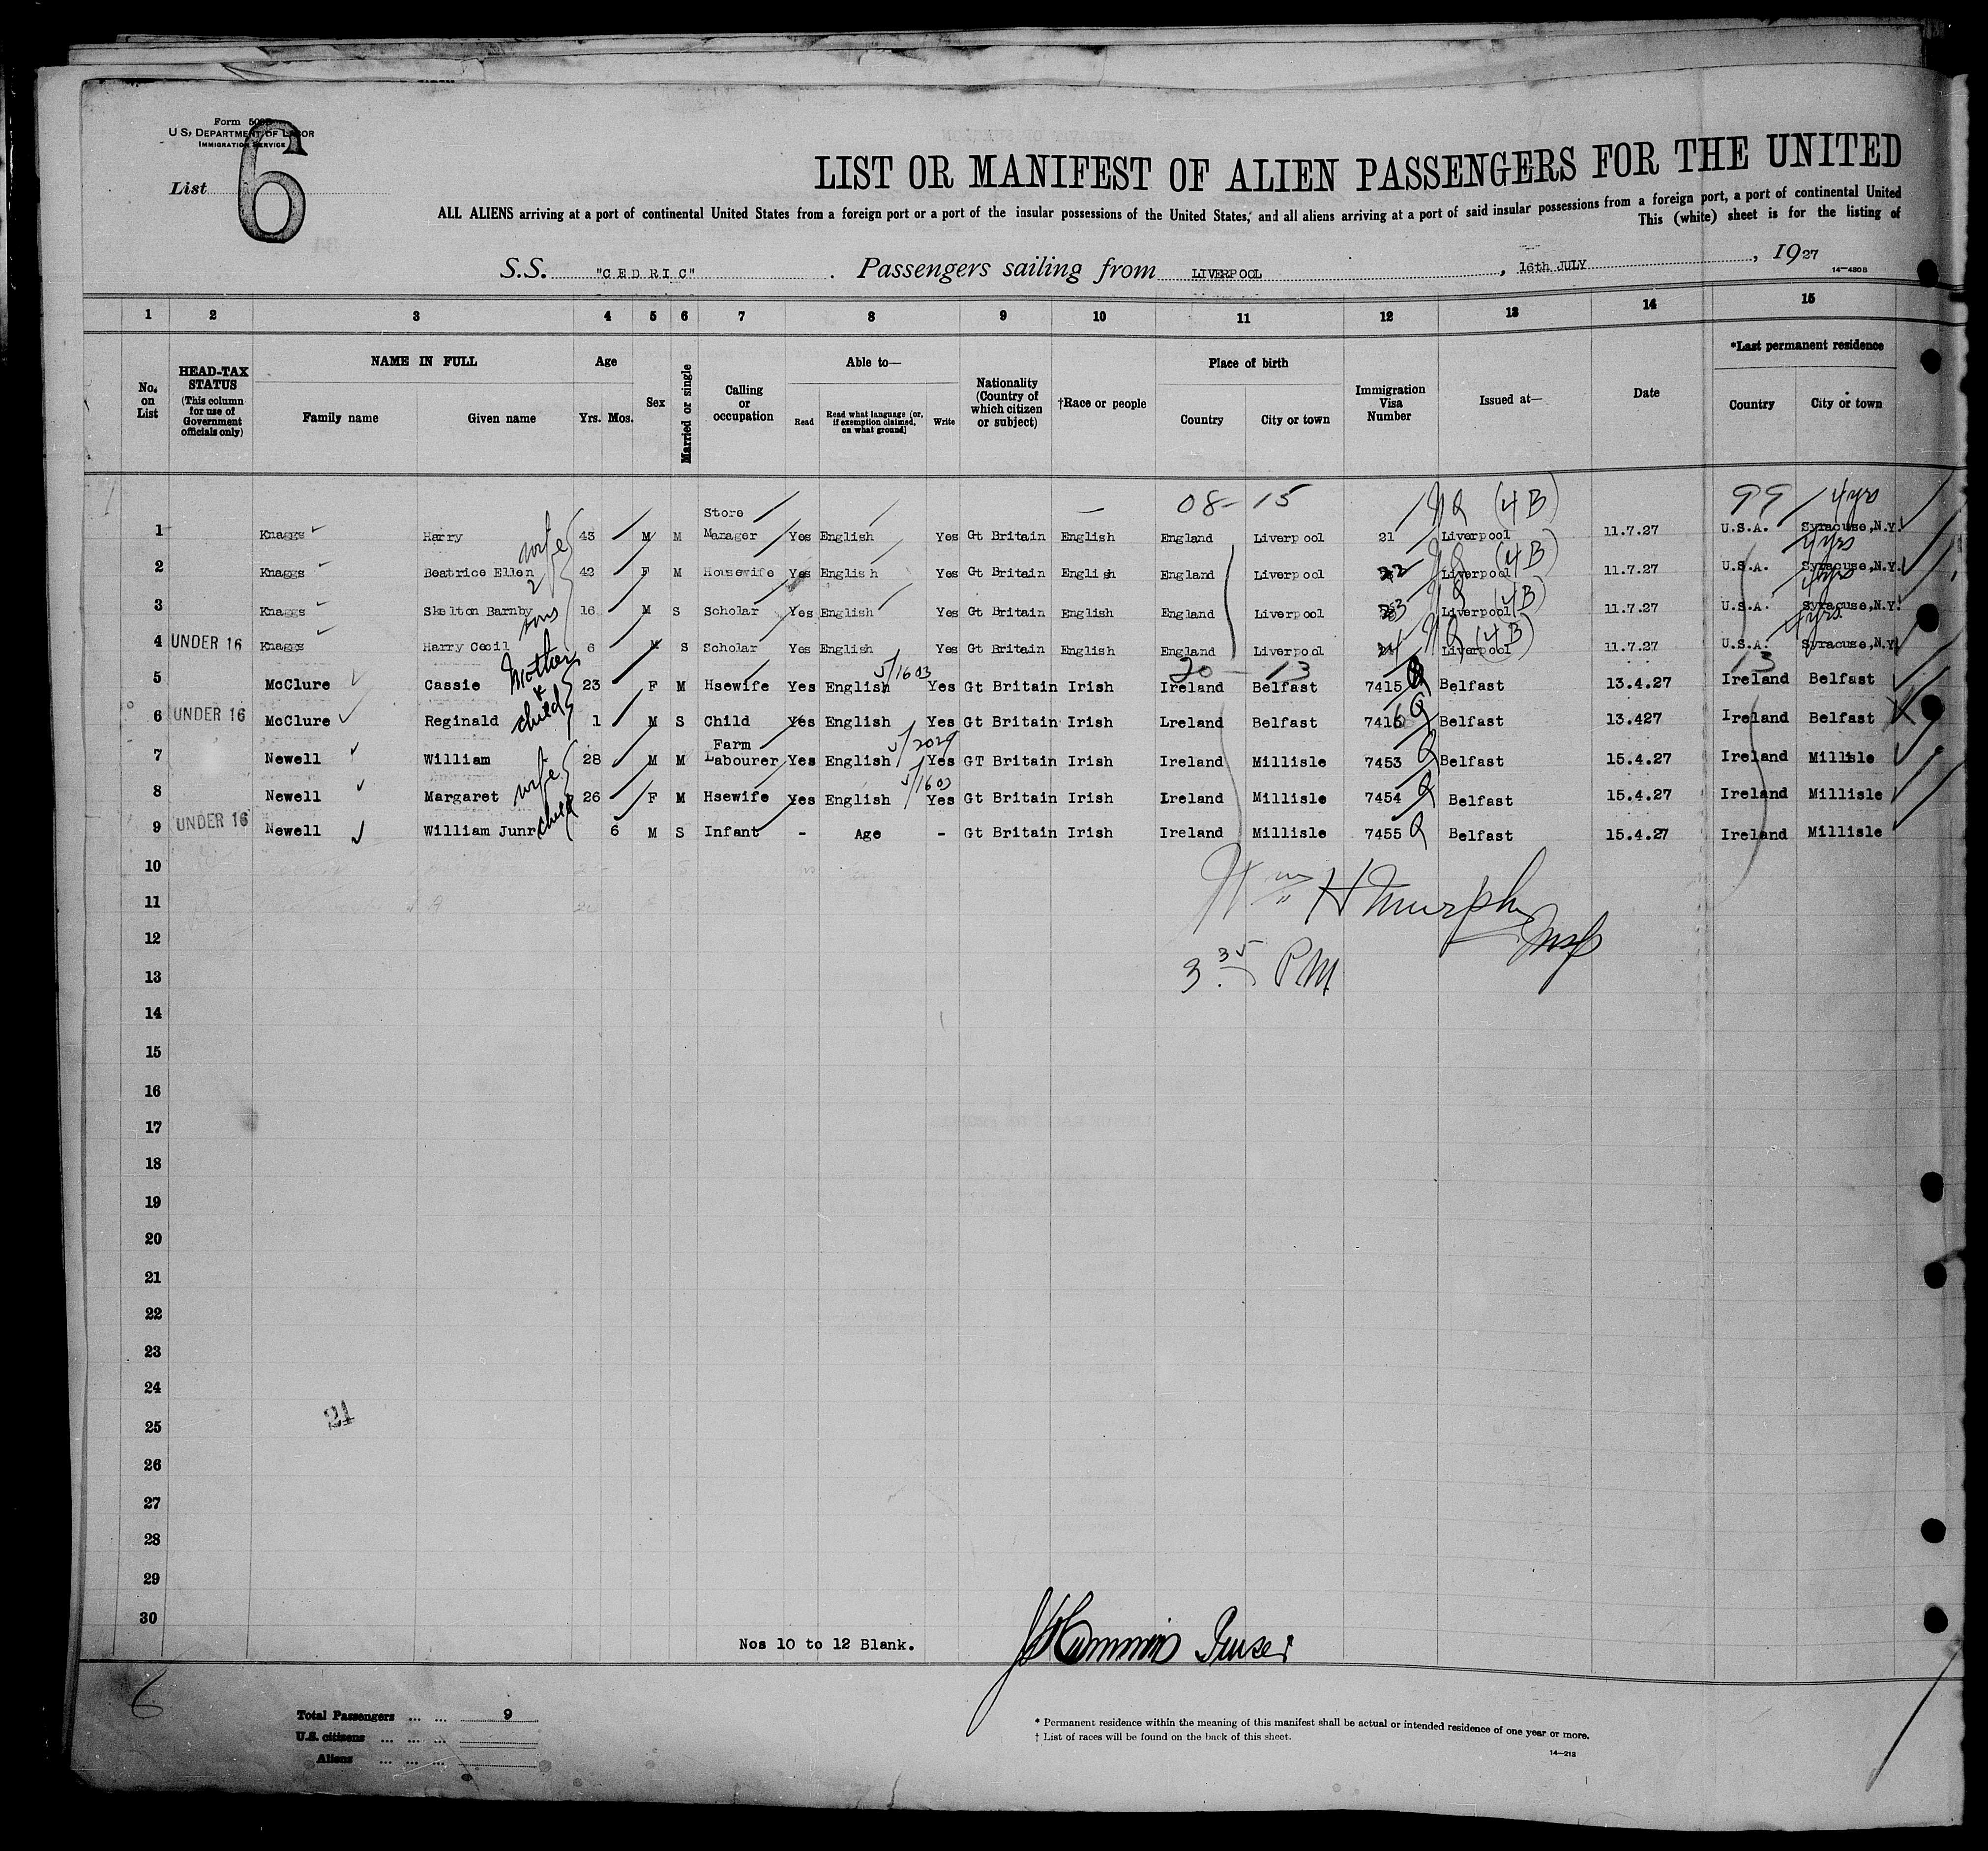 Form 500B
U.S. DEPARTMENT OF LABOR
IMMIGRATION SERVICE
List 6
LIST OR MANIFEST OF ALIEN PASSENGERS FOR THE UNITED
ALL ALIENS arriving at a port of continental United States from a foreign port or a port of the insular possessions of the United States, and all aliens arriving at a port of said insular possessions from a foreign port, a port of continental United
This (white) sheet is for the listing of
S.S. "CEDRIC" . Passengers sailing from LIVERPOOL , 16th JULY , 1927
14—480 B
1 2 3 4 5 6 7 8 9 10 11 12 13 14 15
No. on List
HEAD-TAX STATUS (This column for use of Government officials only)
NAME IN FULL
Family name Given name
Age
Yrs. Mos.
Sex
Married or single
Calling or occupation
Able to—
Read Read what language (or, if exemption claimed, on what ground) Write
Nationality (Country of which citizen or subject)
†Race or people
Place of birth
Country City or town
Immigration Visa Number
Issued at—
Date
*Last permanent residence
Country City or town
08-15 NQ (4B) 99 4yrs
1 Knaggs Harry 43 M M Store Manager Yes English Yes Gt Britain English England Liverpool 21 Liverpool 11.7.27 U.S.A. Syracuse,N.Y.
wife NQ (4B) 4yrs
2 Knaggs Beatrice Ellen 43 F M Housewife Yes English Yes Gt Britain English England Liverpool 22 Liverpool 11.7.27 U.S.A. Syracuse,N.Y.
2 sons NQ (4B) 4yrs
3 Knaggs Skelton Barnby 16 M S Scholar Yes English Yes Gt Britain English England Liverpool 23 Liverpool 11.7.27 U.S.A. Syracuse,N.Y.
NQ (4B) 4yrs.
4 UNDER 16 Knaggs Harry Cecil 6 M S Scholar Yes English Yes Gt Britain English England Liverpool 24 Liverpool 11.7.27 U.S.A. Syracuse,N.Y.
Mother & child 5/1603 20-13 13
5 McClure Cassie 23 F M Hsewife Yes English Yes Gt Britain Irish Ireland Belfast 7415 Q Belfast 13.4.27 Ireland Belfast
6 UNDER 16 McClure Reginald 1 M S Child Yes English Yes Gt Britain Irish Lreland Belfast 7416 Q Belfast 13.427 Ireland Belfast
5/2029
7 Newell William 28 M M Farm Labourer Yes English Yes GT Britain Irish Ireland Millisle 7453 Q Belfast 15.4.27 Ireland Millisle
wife 5/1603
8 Newell Margaret 26 F M Hsewife Yes English Yes Gt Britain Irish Ireland Millisle 7454 Q Belfast 15.4.27 Ireland Millisle
child
9 UNDER 16 Newell William Junr 6 M S Infant - Age - Gt Britain Irish Ireland Millisle 7455 Q Belfast 15.4.27 Ireland Millisle
10
11
Wm H Murphy Insp
12
3 35 PM
13
14
15
16
17
18
19
20
21
22
23
24
21
25
26
27
28
29
30
Nos 10 to 12 Blank.
Purser
6
Total Passengers ... ... 9
U.S. citizens ... ... ...
Aliens ... ... ...
* Permanent residence within the meaning of this manifest shall be actual or intended residence of one year or more.
† List of races will be found on the back of this sheet.
14—213